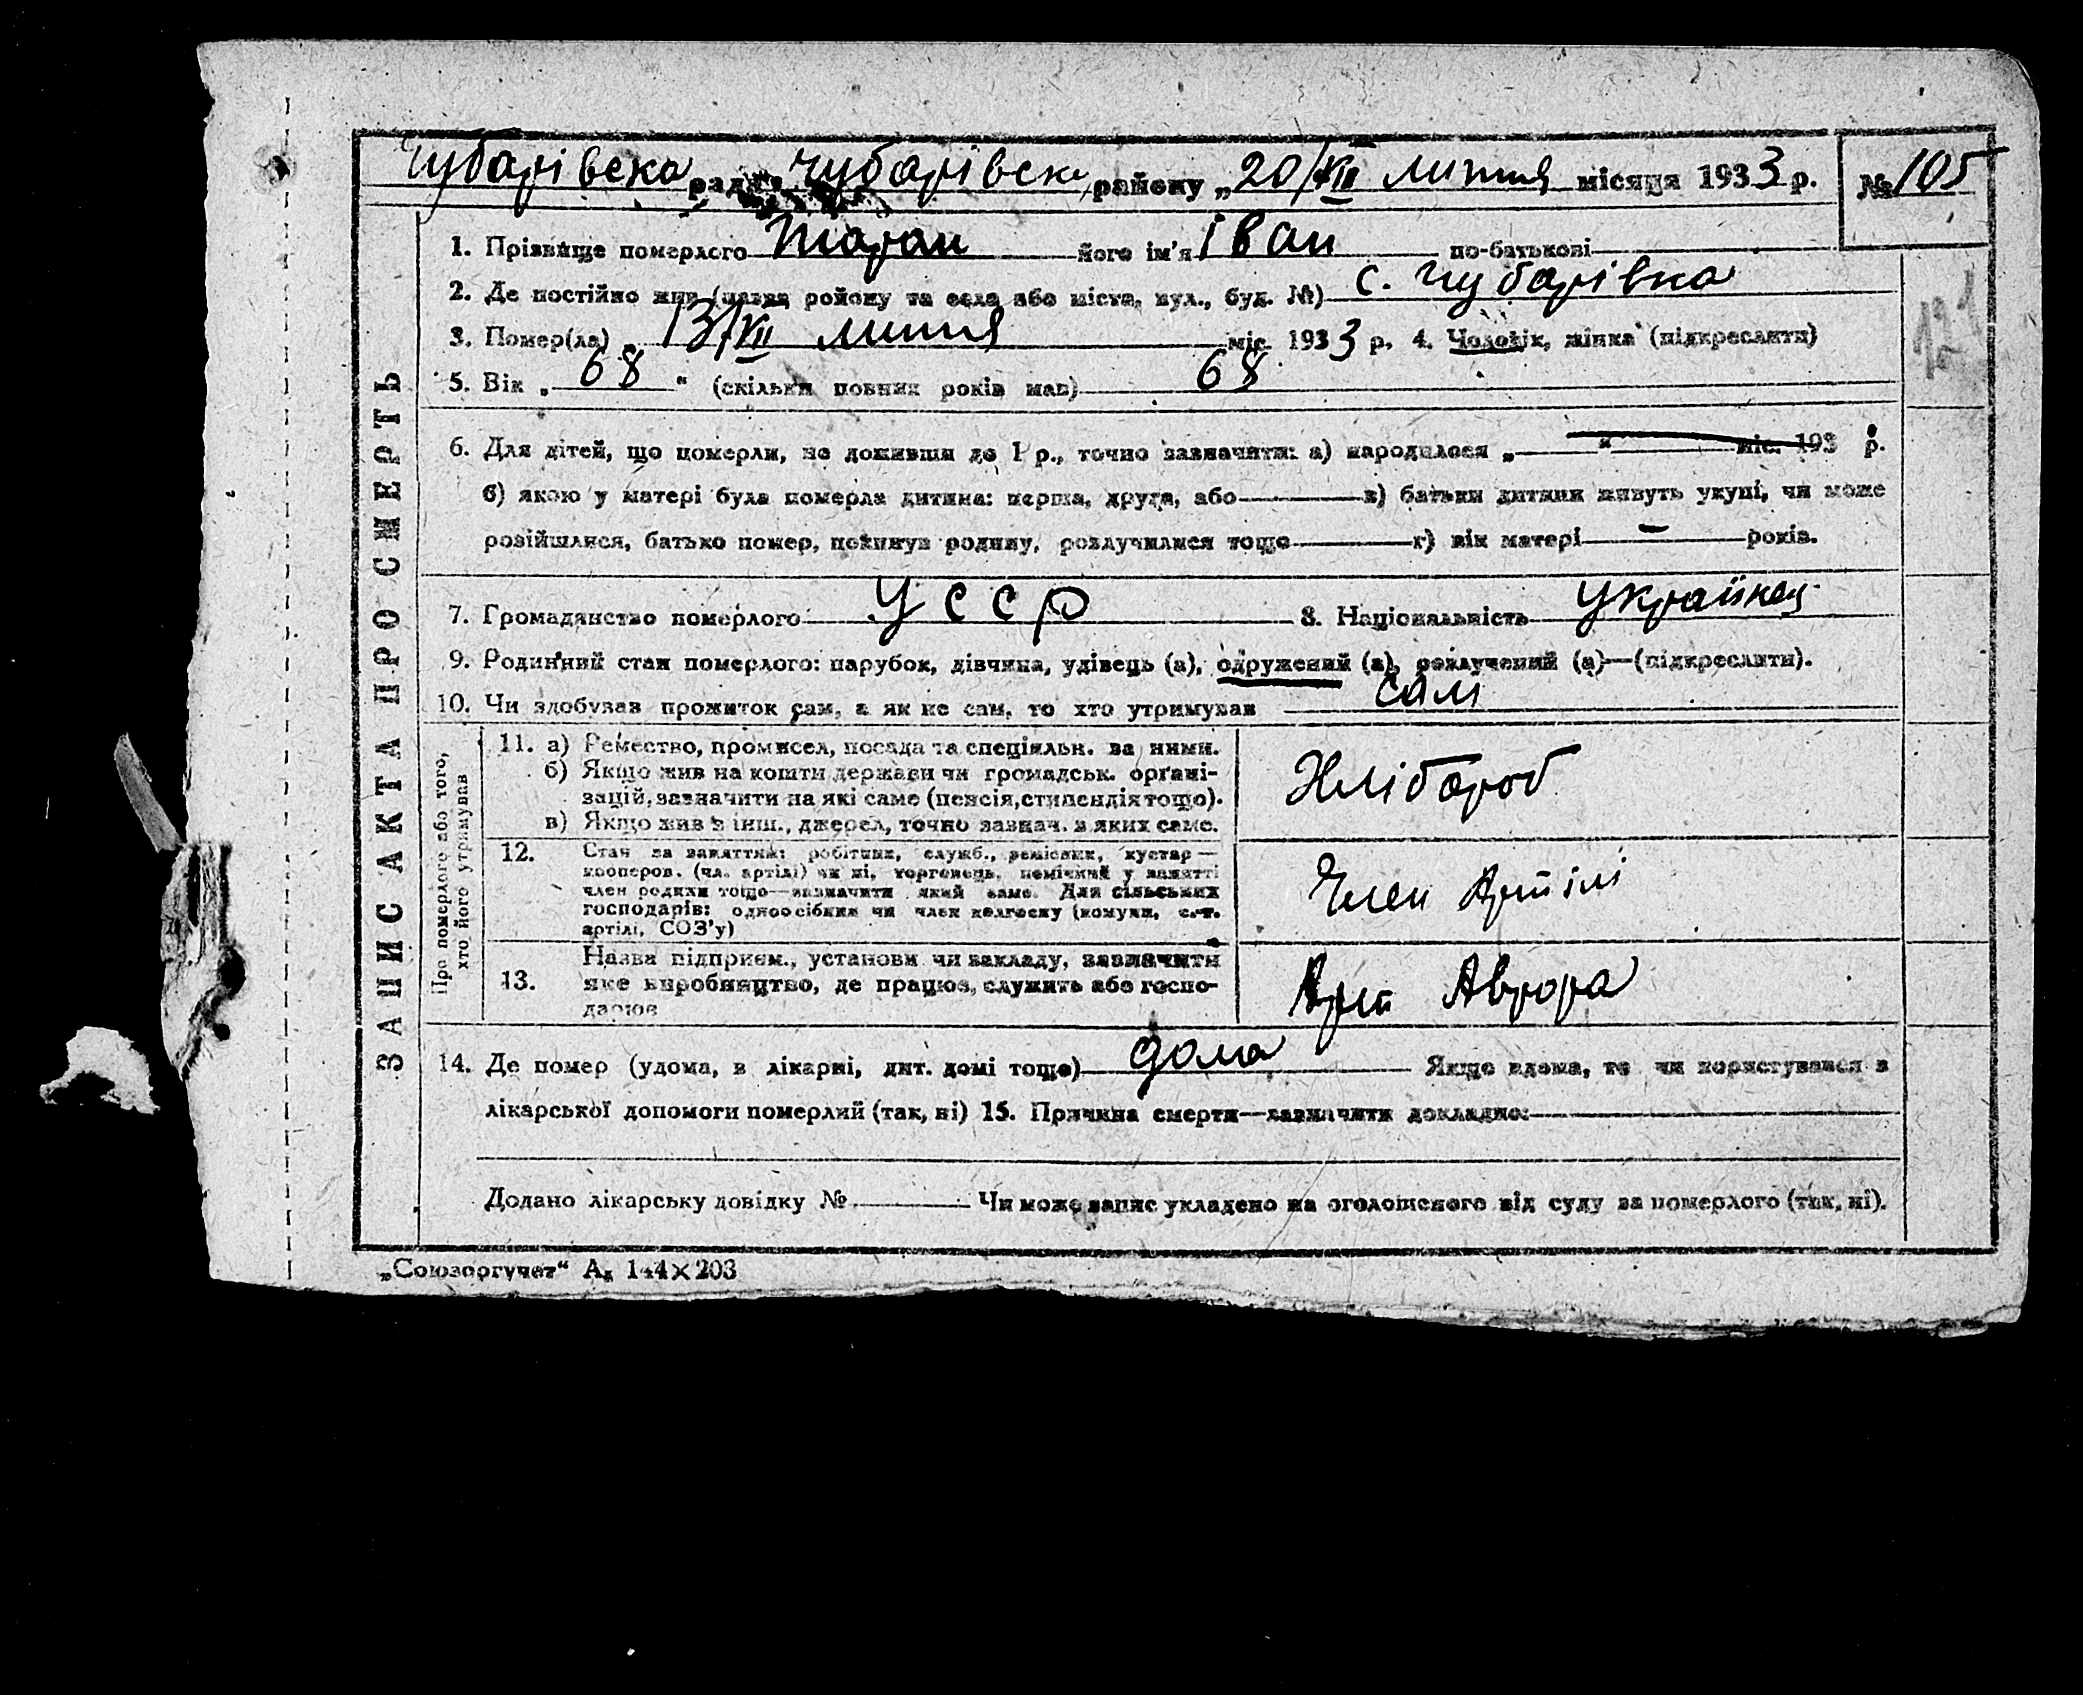 Чубарівська рада, Чубарівськ району „20/VII липня місяця 1933 р. № 105
1. Прізвище померлого Таран його ім'я Іван по-батькові
2. Де постійно жив (назва району та села або міста, вул., буд. №) с. Чубарівка
3. Помер(ла) 13/VII липня міс. 1933 р. 4. Чоловік, жінка (підкреслити)
5. Вік „68“ (скільки повних років мав) 68
6. Для дітей, що померли, не доживши до 1 р., точно зазначити: а) народилося „ “ міс. 193 р.
б) якою у матері була померла дитина: перша, друга, або в) батьки дитини живуть укупі, чи може
розійшлися, батько помер, покинув родину, розлучилися тощо г) вік матері – років.
7. Громадянство померлого УССР 8. Національність Українец
9. Родинний стан померлого: парубок, дівчина, удівець (а), одружений (а), розлучений (а)—(підкреслити).
10. Чи здобував прожиток сам, а як не сам, то хто утримував сам
ЗАПИС АКТА ПРО СМЕРТЬ
Про померлого або того,
хто його утримував
11. а) Ремество, промисел, посада та спеціяльн. за ними.
б) Якщо жив на кошти держави чи громадськ. органі-
зацій, зазначити на які саме (пенсія, стипендія тощо).
в) Якщо жив з інш., джерел, точно зазнач. з яких саме.
Хлібороб
12. Стан за заняттям: робітник, служб., ремісник, кустар—
кооперов. (чл. артілі) чи ні, торговець, помічний у занятті
член родини тощо—зазначити який саме. Для сільських
господарів: одноосібник чи член колгоспу (комуни, с.-г.
артілі, СОЗ'у)
Член Артілі
13. Назва підприєм., установи чи закладу, зазначити
яке виробництво, де працюв, служить або госпо-
дарюв
Арт Аврора
14. Де помер (удома, в лікарні, дит. домі тощо) дома Якщо вдома, то чи користувався з
лікарської допомоги померлий (так, ні) 15. Причина смерти—зазначити докладно:
Додано лікарську довідку № Чи може запис укладено на оголошеного від суду за померлого (так, ні).
„Союзоргучет“ А₅ 144×203